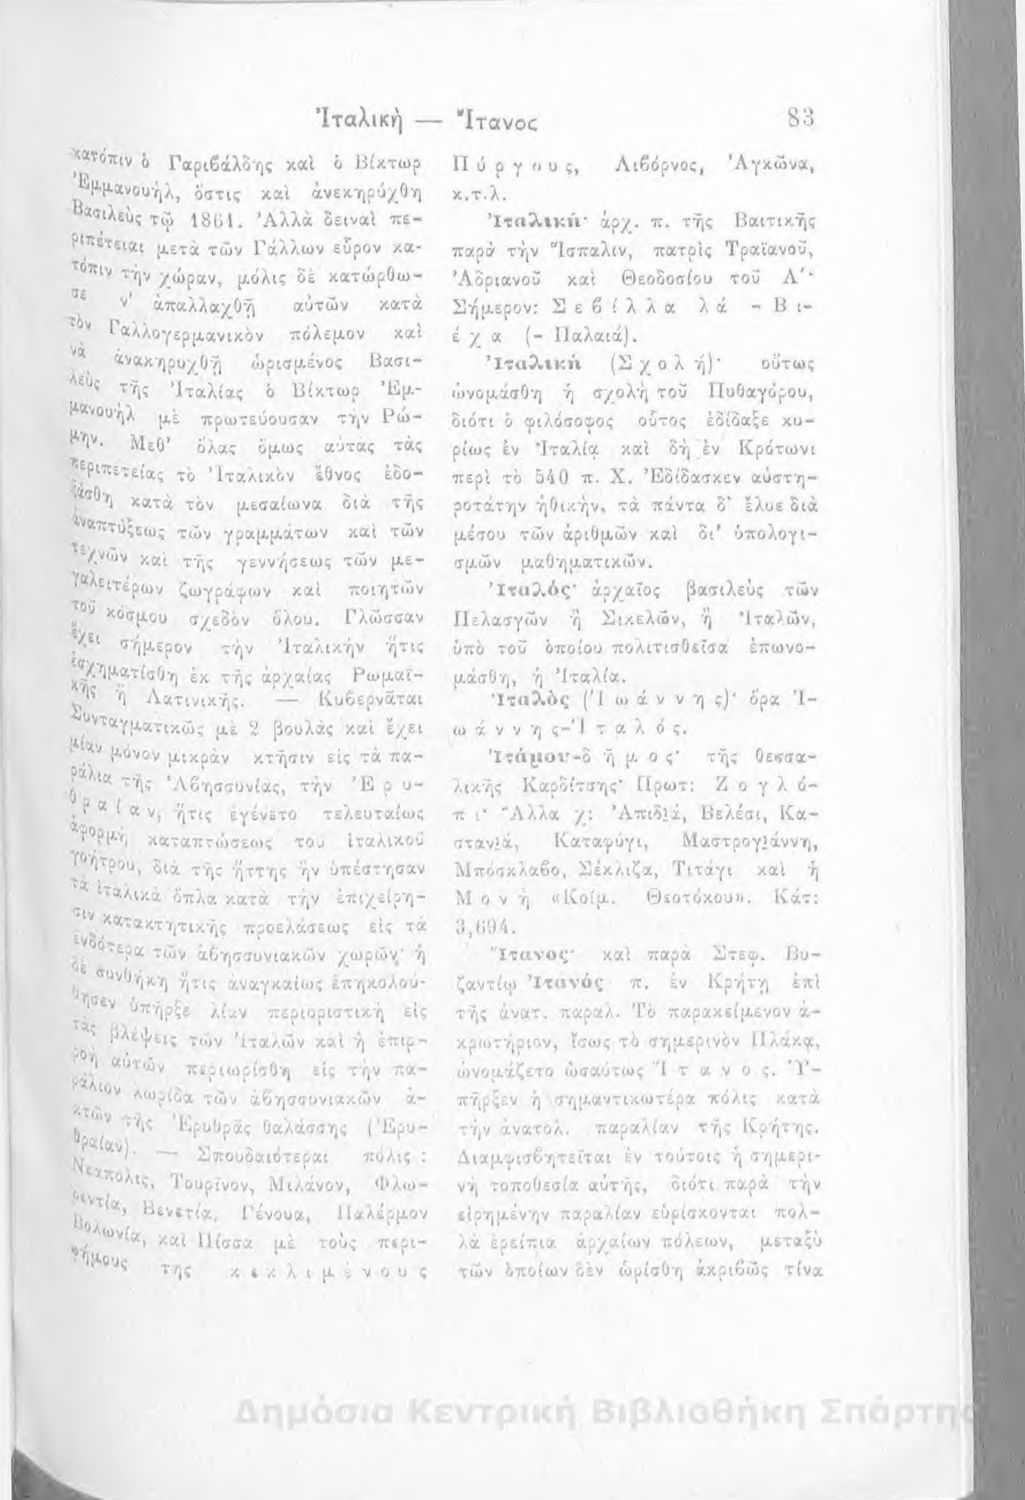 Ἰταλικὴ — Ἴτανος 83
κατόπιν ὁ Γαριβάλδης καὶ ὁ Βίκτωρ
Ἐμμανουήλ, ὅστις καὶ ἀνεκηρύχθη
Βασιλεὺς τῷ 1861. Ἀλλὰ δειναὶ πε-
ριπέτειαι μετὰ τῶν Γάλλων εὗρον κα-
τόπιν τὴν χώραν, μόλις δὲ κατώρθω-
σε ν' ἀπαλλαχθῇ αὐτῶν κατὰ
τὸν Γαλλογερμανικὸν πόλεμον καὶ
νὰ ἀνακηρυχθῇ ὡρισμένος Βασι-
λεὺς τῆς Ἰταλίας ὁ Βίκτωρ Ἐμ-
μανουὴλ μὲ πρωτεύουσαν τὴν Ρώ-
μην. Μεθ' ὅλας ὅμως αὐτας τὰς
περιπετείας τὸ Ἰταλικὸν ἔθνος ἐδο-
ξάσθη κατὰ τὸν μεσαίωνα διὰ τῆς
ἀναπτύξεως τῶν γραμμάτων καὶ τῶν
τεχνῶν καὶ τῆς γεννήσεως τῶν με-
γαλειτέρων ζωγράφων καὶ ποιητῶν
τοῦ κόσμου σχεδὸν ὅλου. Γλῶσσαν
ἔχει σήμερον τὴν Ἰταλικὴν ἥτις
ἐσχηματίσθη ἐκ τῆς ἀρχαίας Ρωμαϊ-
κῆς ἢ Λατινικῆς. — Κυβερνᾶται
Συνταγματικῶς μὲ 2 βουλὰς καὶ ἔχει
μίαν μόνον μικρὰν κτῆσιν εἰς τὰ πα-
ράλια τῆς Ἀβησσυνίας, τὴν Ἐρυ-
θραίαν, ἥτις ἐγένετο τελευταίως
ἀφορμὴ καταπτώσεως τοῦ ἰταλικοῦ
γοήτρου, διὰ τῆς ἥττης ἣν ὑπέστησαν
τὰ ἰταλικὰ ὅπλα κατὰ τὴν ἐπιχείρη-
σιν κατακτητικῆς προελάσεως εἰς τὰ
ἐνδότερα τῶν ἀβησσυνιακῶν χωρῶν· ἡ
δὲ συνθήκη ἥτις ἀναγκαίως ἐπηκολού-
θησεν ὑπῆρξε λίαν περιοριστικὴ εἰς
τὰς βλέψεις τῶν Ἰταλῶν καὶ ἡ ἐπιρ-
ροὴ αὐτῶν περιωρίσθη εἰς τὴν πα-
ράλιον λωρίδα τῶν ἀβησσυνιακῶν ἀ-
κτῶν τῆς Ἐρυθρᾶς θαλάσσης (Ἐρυ-
θραίαν). — Σπουδαιότεραι πόλις :
Νεάπολις, Τουρῖνον, Μιλάνον, Φλω-
ρεντία, Βενετία, Γένουα, Παλέρμον
Βολωνία, καὶ Πίσσα μὲ τοὺς περι-
φήμους τῆς κεκλιμένους
Πύργους, Λιβόρνος, Ἀγκῶνα,
κ.τ.λ.
Ἰταλική· ἀρχ. π. τῆς Βαιτικῆς
παρὰ τὴν Ἴσπαλιν, πατρὶς Τραϊανοῦ,
Ἀδριανοῦ καὶ Θεοδοσίου τοῦ Α΄·
Σήμερον: Σεβίλλα λά - Βι-
έχα (- Παλαιά).
Ἰταλικὴ (Σχολή)· οὕτως
ὠνομάσθη ἡ σχολὴ τοῦ Πυθαγόρου,
διότι ὁ φιλόσοφος οὗτος ἐδίδαξε κυ-
ρίως ἐν Ἰταλίᾳ καὶ δὴ ἐν Κρότωνι
περὶ τὸ 540 π. Χ. Ἐδίδασκεν αὐστη-
ροτάτην ἠθικήν, τὰ πάντα δ' ἔλυε διὰ
μέσου τῶν ἀριθμῶν καὶ δι' ὑπολογι-
σμῶν μαθηματικῶν.
Ἰταλός· ἀρχαῖος βασιλεὺς τῶν
Πελασγῶν ἢ Σικελῶν, ἢ Ἰταλῶν,
ὑπὸ τοῦ ὁποίου πολιτισθεῖσα ἐπωνο-
μάσθη, ἡ Ἰταλία.
Ἰταλὸς (Ἰωάννης)· ὅρα Ἰ-
ωάννης-Ἰταλός.
Ἰτάμου-δῆμος· τῆς θεσσα-
λικῆς Καρδίτσης· Πρωτ: Ζογλό-
πι· Ἄλλα χ: Ἀπιδιά, Βελέσι, Κα-
στανιά, Καταφύγι, Μαστρογιάννη,
Μπόσκλαβο, Σέκλιζα, Τιτάγι καὶ ἡ
Μονὴ «Κοίμ. Θεοτόκου». Κάτ:
3,694.
Ἴτανος· καὶ παρὰ Στεφ. Βυ-
ζαντίῳ Ἰτανός π. ἐν Κρήτῃ ἐπὶ
τῆς ἀνατ. παραλ. Τὸ παρακείμενον ἀ-
κρωτήριον, ἴσως τὸ σημερινὸν Πλάκα,
ὠνομάζετο ὡσαύτως Ἴτανος. Ὑ-
πῆρξεν ἡ σημαντικωτέρα πόλις κατὰ
τὴν ἀνατολ. παραλίαν τῆς Κρήτης.
Διαμφισβητεῖται ἐν τούτοις ἡ σημερι-
νὴ τοποθεσία αὐτῆς, διότι παρὰ τὴν
εἰρημένην παραλίαν εὑρίσκονται πολ-
λὰ ἐρείπια ἀρχαίων πόλεων, μεταξὺ
τῶν ὁποίων δὲν ὡρίσθη ἀκριβῶς τίνα
Δημόσια Κεντρική Βιβλιοθήκη Σπάρτης